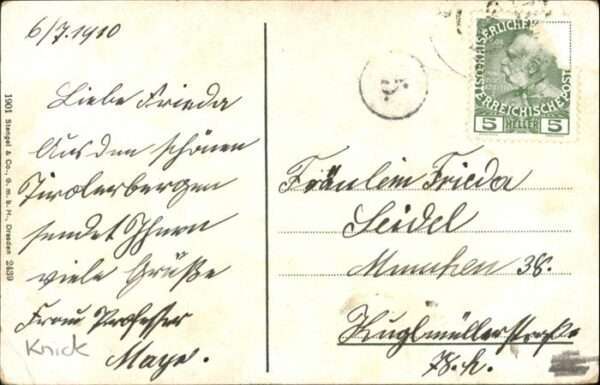 6/7.1910
Liebe Frieda
Aus den schönen
Tirolerbergen
sendet Ihnen
viele Grüße
Frau Professer
Mayr.
Knick
1901 Stengel & Co., G. m. b. H., Dresden 2439
KAISERLICHE
ÖSTERREICHISCHE POST
5 HELLER 5
Fräulein Frieda
Seidel
München 38.
Kuglmüllerstraße
78.